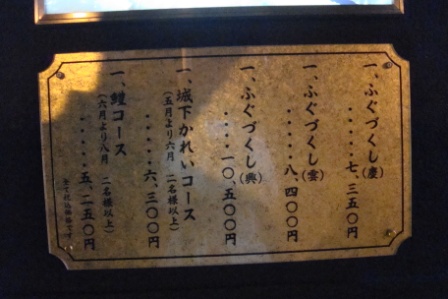 一、ふぐづくし(慶)
・・・・・七、三五〇円
一、ふぐづくし(雲)
・・・・・八、四〇〇円
一、ふぐづくし(興)
・・・・一〇、五〇〇円
一、城下かれいコース
(五月より六月 二名様以上)
・・・・・六、三〇〇円
一、鱧コース
(六月より八月 二名様以上)
・・・・・五、二五〇円
全て税込価格です